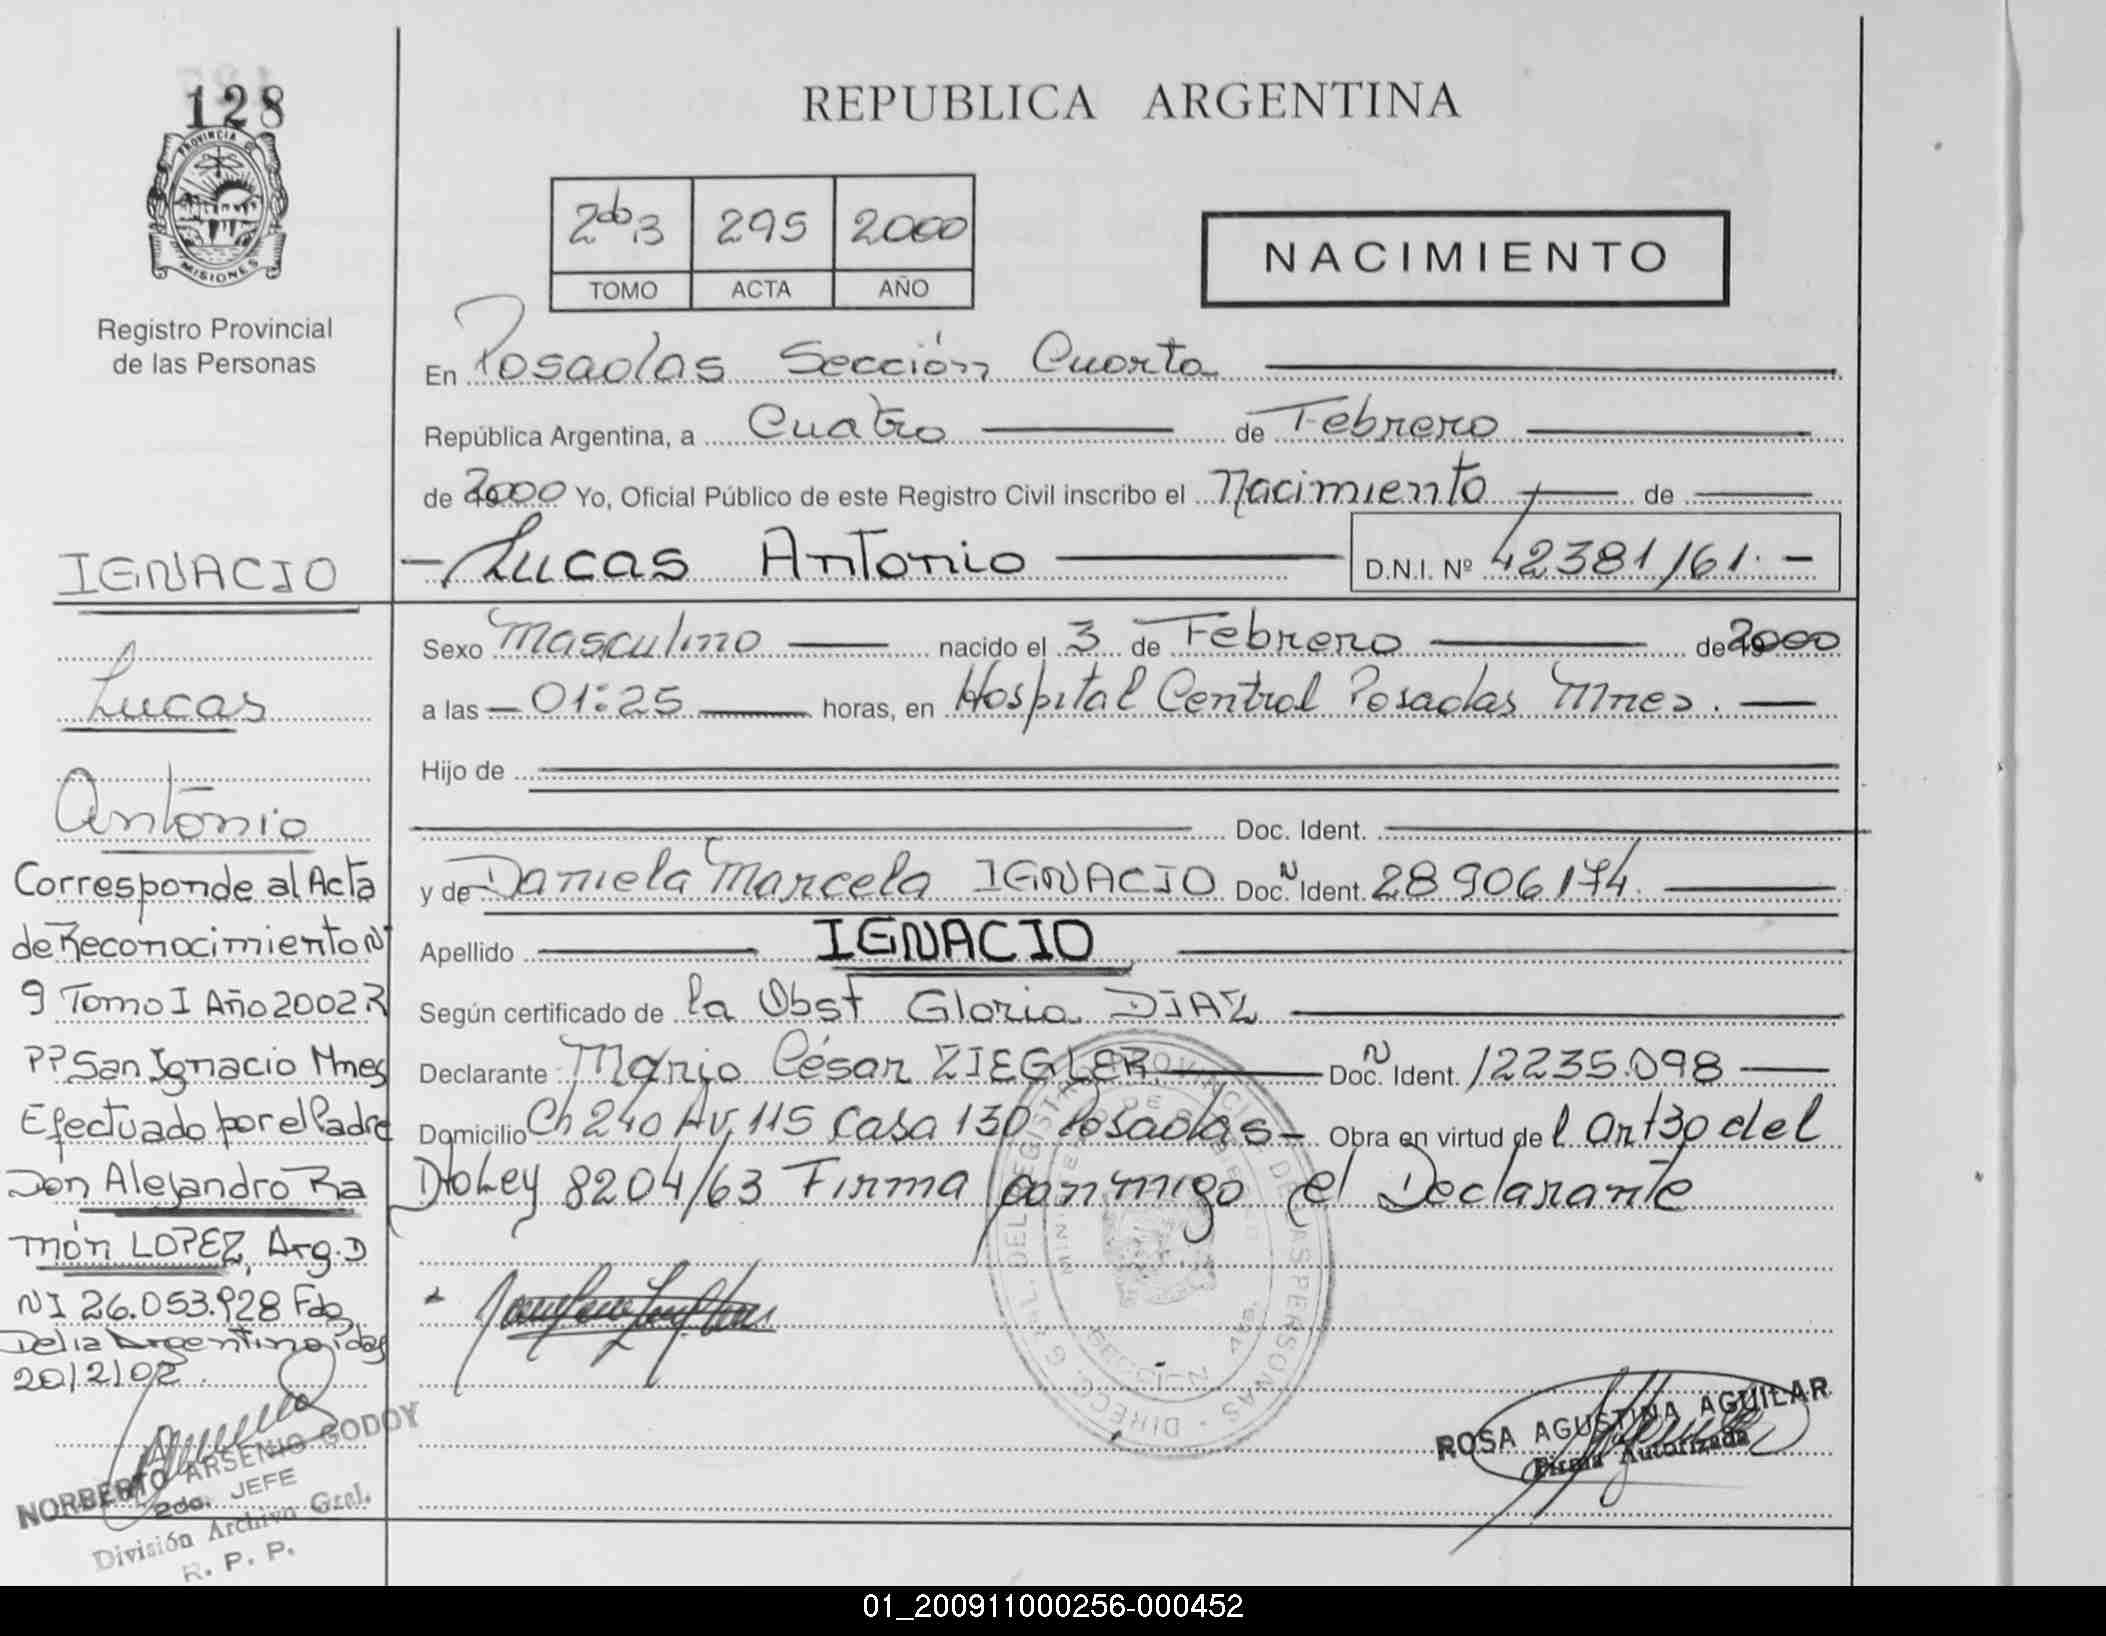 128
PROVINCIA DE
MISIONES
Registro Provincial
de las Personas
IGNACIO
Lucas
Antonio
Corresponde al Acta
de Reconocimiento Nº
9 Tomo I Año 2002 R
PP San Ignacio Mnes
Efectuado por el Padre
Don Alejandro Ra
món LOPEZ, Arg. D
NI 26.053.928 Fdo,
Delia Argentina
20/2/02.
NORBERTO ARSENIO GODOY
2do. JEFE
División Archivo Gral.
R. P. P.
REPUBLICA ARGENTINA
2do 3 295 2000
TOMO ACTA AÑO
NACIMIENTO
En Posadas Sección Cuarta
República Argentina, a Cuatro de Febrero
de 2000 Yo, Oficial Público de este Registro Civil inscribo el Nacimiento de
Lucas Antonio D.N.I. Nº 42381161.-
Sexo Masculino nacido el 3 de Febrero de 2000
a las 01:25 horas, en Hospital Central Posadas Mnes.
Hijo de
Doc. Ident.
y de Daniela Marcela IGNACIO Doc. N Ident. 28906174.
Apellido IGNACIO
Según certificado de la Obst Gloria DIAZ
Declarante Mario César ZIEGLER Doc. N Ident. 12235.098
Domicilio Ch 240 Av. 115 Casa 130 Posadas- Obra en virtud del Art 30 del
Dto Ley 8204/63 Firma conmigo el Declarante
DIRECC. GRAL. DEL REGISTRO PROVINCIAL DE LAS PERSONAS
MINISTERIO DE GOBIERNO
SECCION 4ta.
ROSA AGUSTINA AGUILAR
Firma Autorizada
01_200911000256-000452